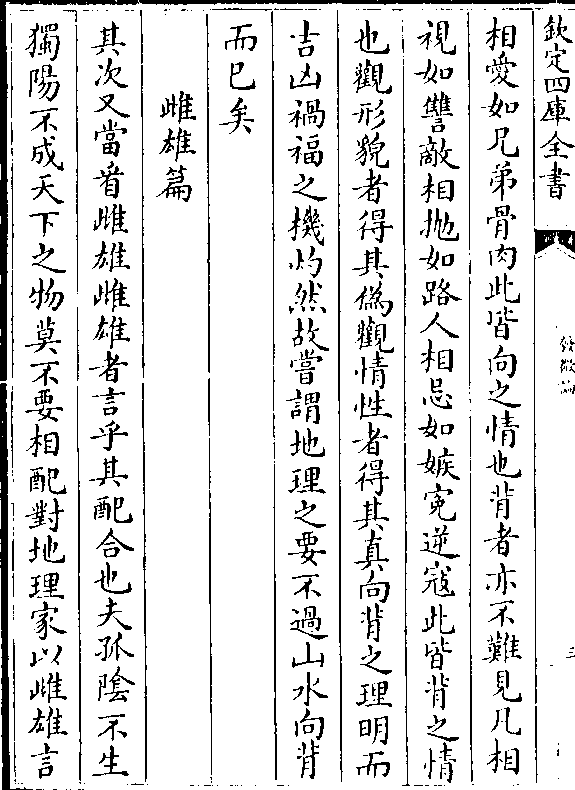 欽定四庫全書
發微論
三
相愛如兄弟骨肉此皆向之情也背者亦不難見凡相
視如讐敵相抛如路人相忌如嫉寃逆寇此皆背之情
也觀形貌者得其偽觀情性者得其真向背之理明而
吉凶禍福之機灼然故嘗謂地理之要不過山水向背
而已矣
雌雄篇
其次又當看雌雄雌雄者言乎其配合也夫孤陰不生
獨陽不成天下之物莫不要相配對地理家以雌雄言